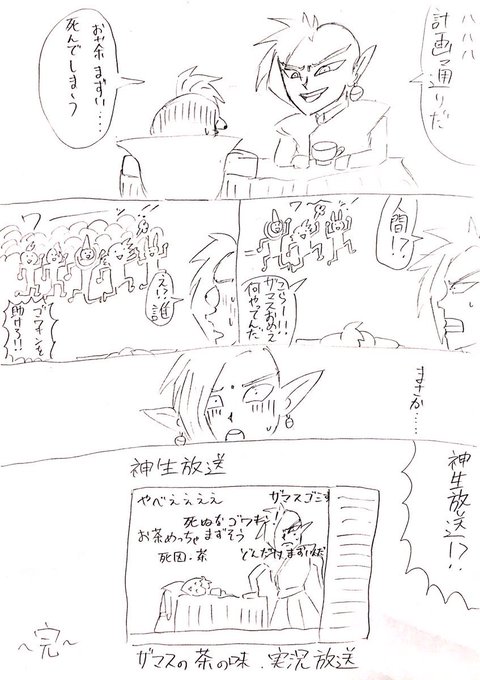 ハハハ
計画通りだ
お茶まずい……
死んでしまう
人間!?
こらー!!
ザマスおめえ
何やってんだ
ワー
え!?誰
ゴワサンを
助けろ!!
まさか……
神生放送!?
神生放送
やべええええ
ザマスゴミす
死ぬなゴワサ!
お茶めっちゃまずそう
死因・茶
どんだけまずいんだ
ザマスの茶の味、実況放送
~完~